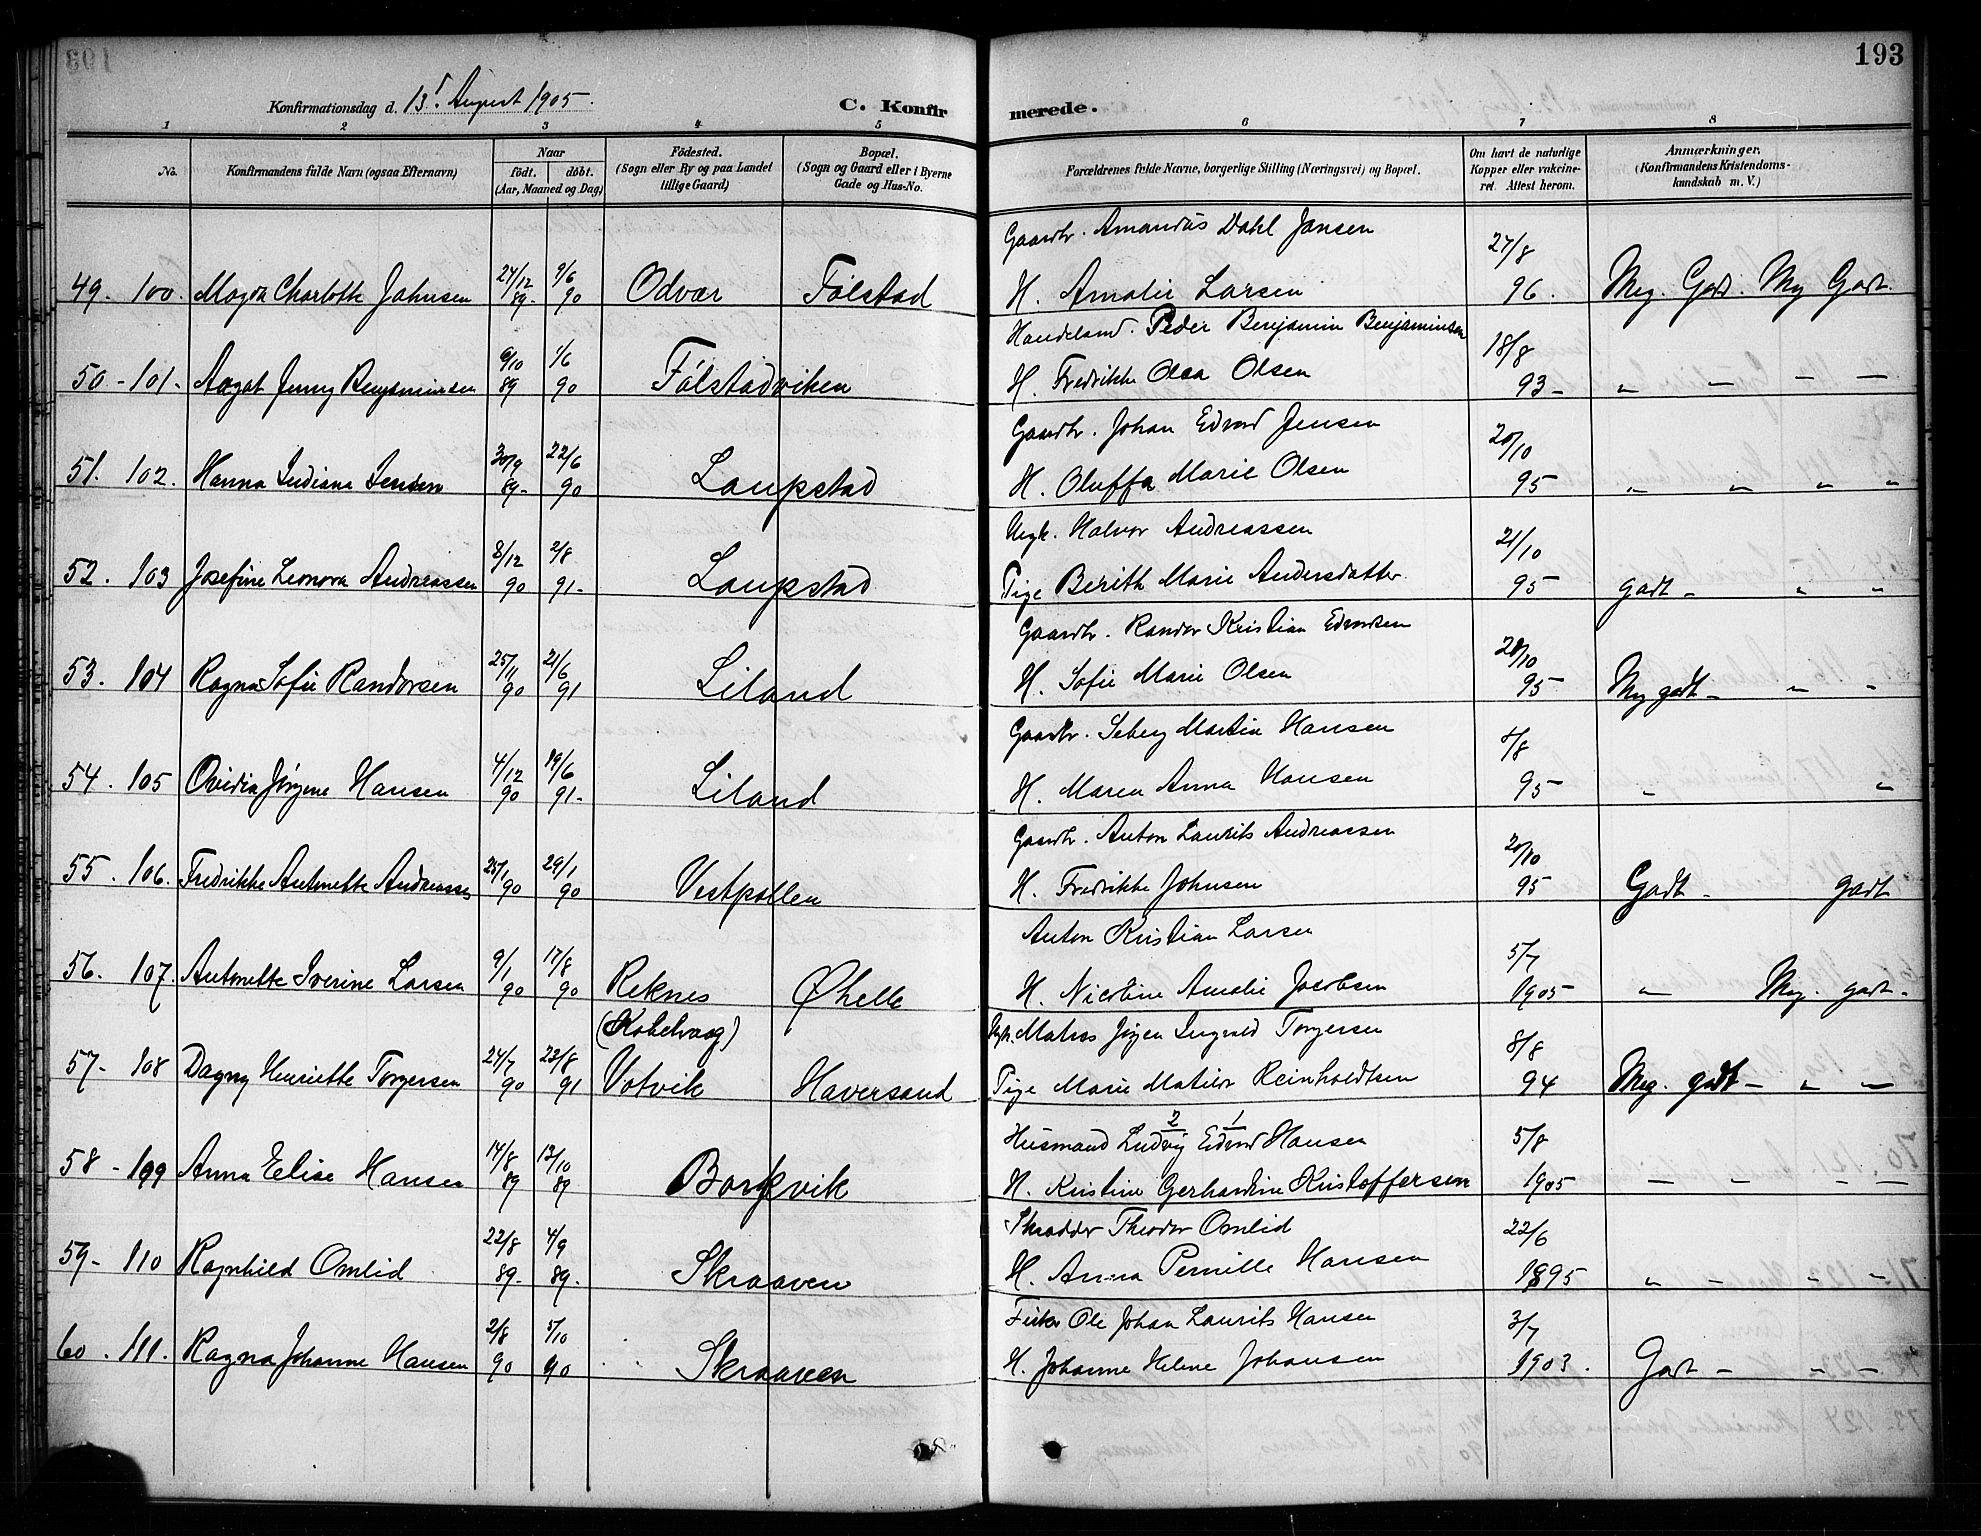 193
Konfirmationsdag d. 13. August 1905.
C. Konfirmerede.
1 2 3 4 5 6 7 8
No. Konfirmandens fulde Navn (ogsaa Efternavn) Naar født. døbt. (Aar, Maaned og Dag) Fødested. (Sogn eller By og paa Landet tillige Gaard) Bopæl. (Sogn og Gaard eller i Byerne Gade og Hus-No. Forældrenes fulde Navne, borgerlige Stilling (Næringsvei) og Bopæl. Om havt de naturlige Kopper eller vakcineret. Attest herom. Anmærkninger. (Konfirmandens Kristendomskundskab m. V.)
Gaardbr. Amandus Dahl Jansen 27/8
49. 100. Magda Charlotte Jahnsen 27/12 89- 9/6 90 Odvær Følstad H. Amalie Larsen 96. Meg. Godt. Mg Godt.
Handelsmd. Peder Benjamin Benjaminsen 18/8
50 - 101. Aagot Jenny Benjaminsen 9/10 89 1/6 90 Følstadviken H. Fredrikke Olea Olsen 93 - " - - -
Gaardbr. Johan Edvard Jensen 20/10
51. 102. Hanna Indiana Jensen 30/9 89- 22/6 90 Laupstad H. Oluffa Marie Olsen 95 " " " "
Ungk. Halvor Andreassen 21/10
52. 103 Josefine Leonora Andreassen 8/12 90 2/8 91- Laupstad Pige Berith Marie Andersdatter. 95 godt - " "
Gaardbr. Randor Kristian Edvardsen 28/10
53. 104 Ragna Sofie Randorsen 25/11 90 21/6 91 Liland H. Sofie Marie Olsen 95 Mg godt - " "
Gaardbr. Seberg Martin Hansen 8/8
54. 105 Ovidia Jørgine Hansen 4/12 90 19/6 91- Liland H. Maren Anna Hansen 95 " "
Gaardbr. Anton Laurits Andreassen 20/10
55. 106. Fredrikke Antonette Andreassen 25/1 90 29/1 90 Vestpollen H. Fredrikke Johnsen 95 Godt - godt
Anton Kristian Larsen 5/7
56. 107. Antonette Iverine Larsen 9/1 90 17/8 90 Reknes Øhelle H. Nicoline Amalie Jacobsen 1905 " Meg. godt.
(Kobelvaag) Ungk. Matias Jørgen Ingvald Torgersen 8/8
57- 108 Dagny Henriette Torgersen 24/7 90 23/8 91 Votvik Haversand Pige Marie Matilde Reinholdtsen 94 Meg. godt - " -
2 1
Husmand Ludvig Edvard Hansen 5/8
58 - 109 Anna Elise Hansen 14/8 89 13/10 89 Borkvik H. Kristine Gerhardine Kristoffersen 1905 - " - -
Skrædder Theodor Omlid 22/6
59- 110 Ragnhild Omlid 22/8 89- 4/9 89- Skraaven H. Anna Pernille Hansen 1895 " - " "
Fisker Ole Johan Laurits Hansen 3/7
60. 111. Ragna Johanne Hansen 2/8 90 5/10 90 Skraaven H. Johanne Heline Johansen 1903. Godt - " -